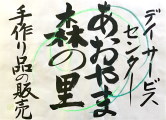 デイサービス
センター
あおやま
森の里
手作り品の販売